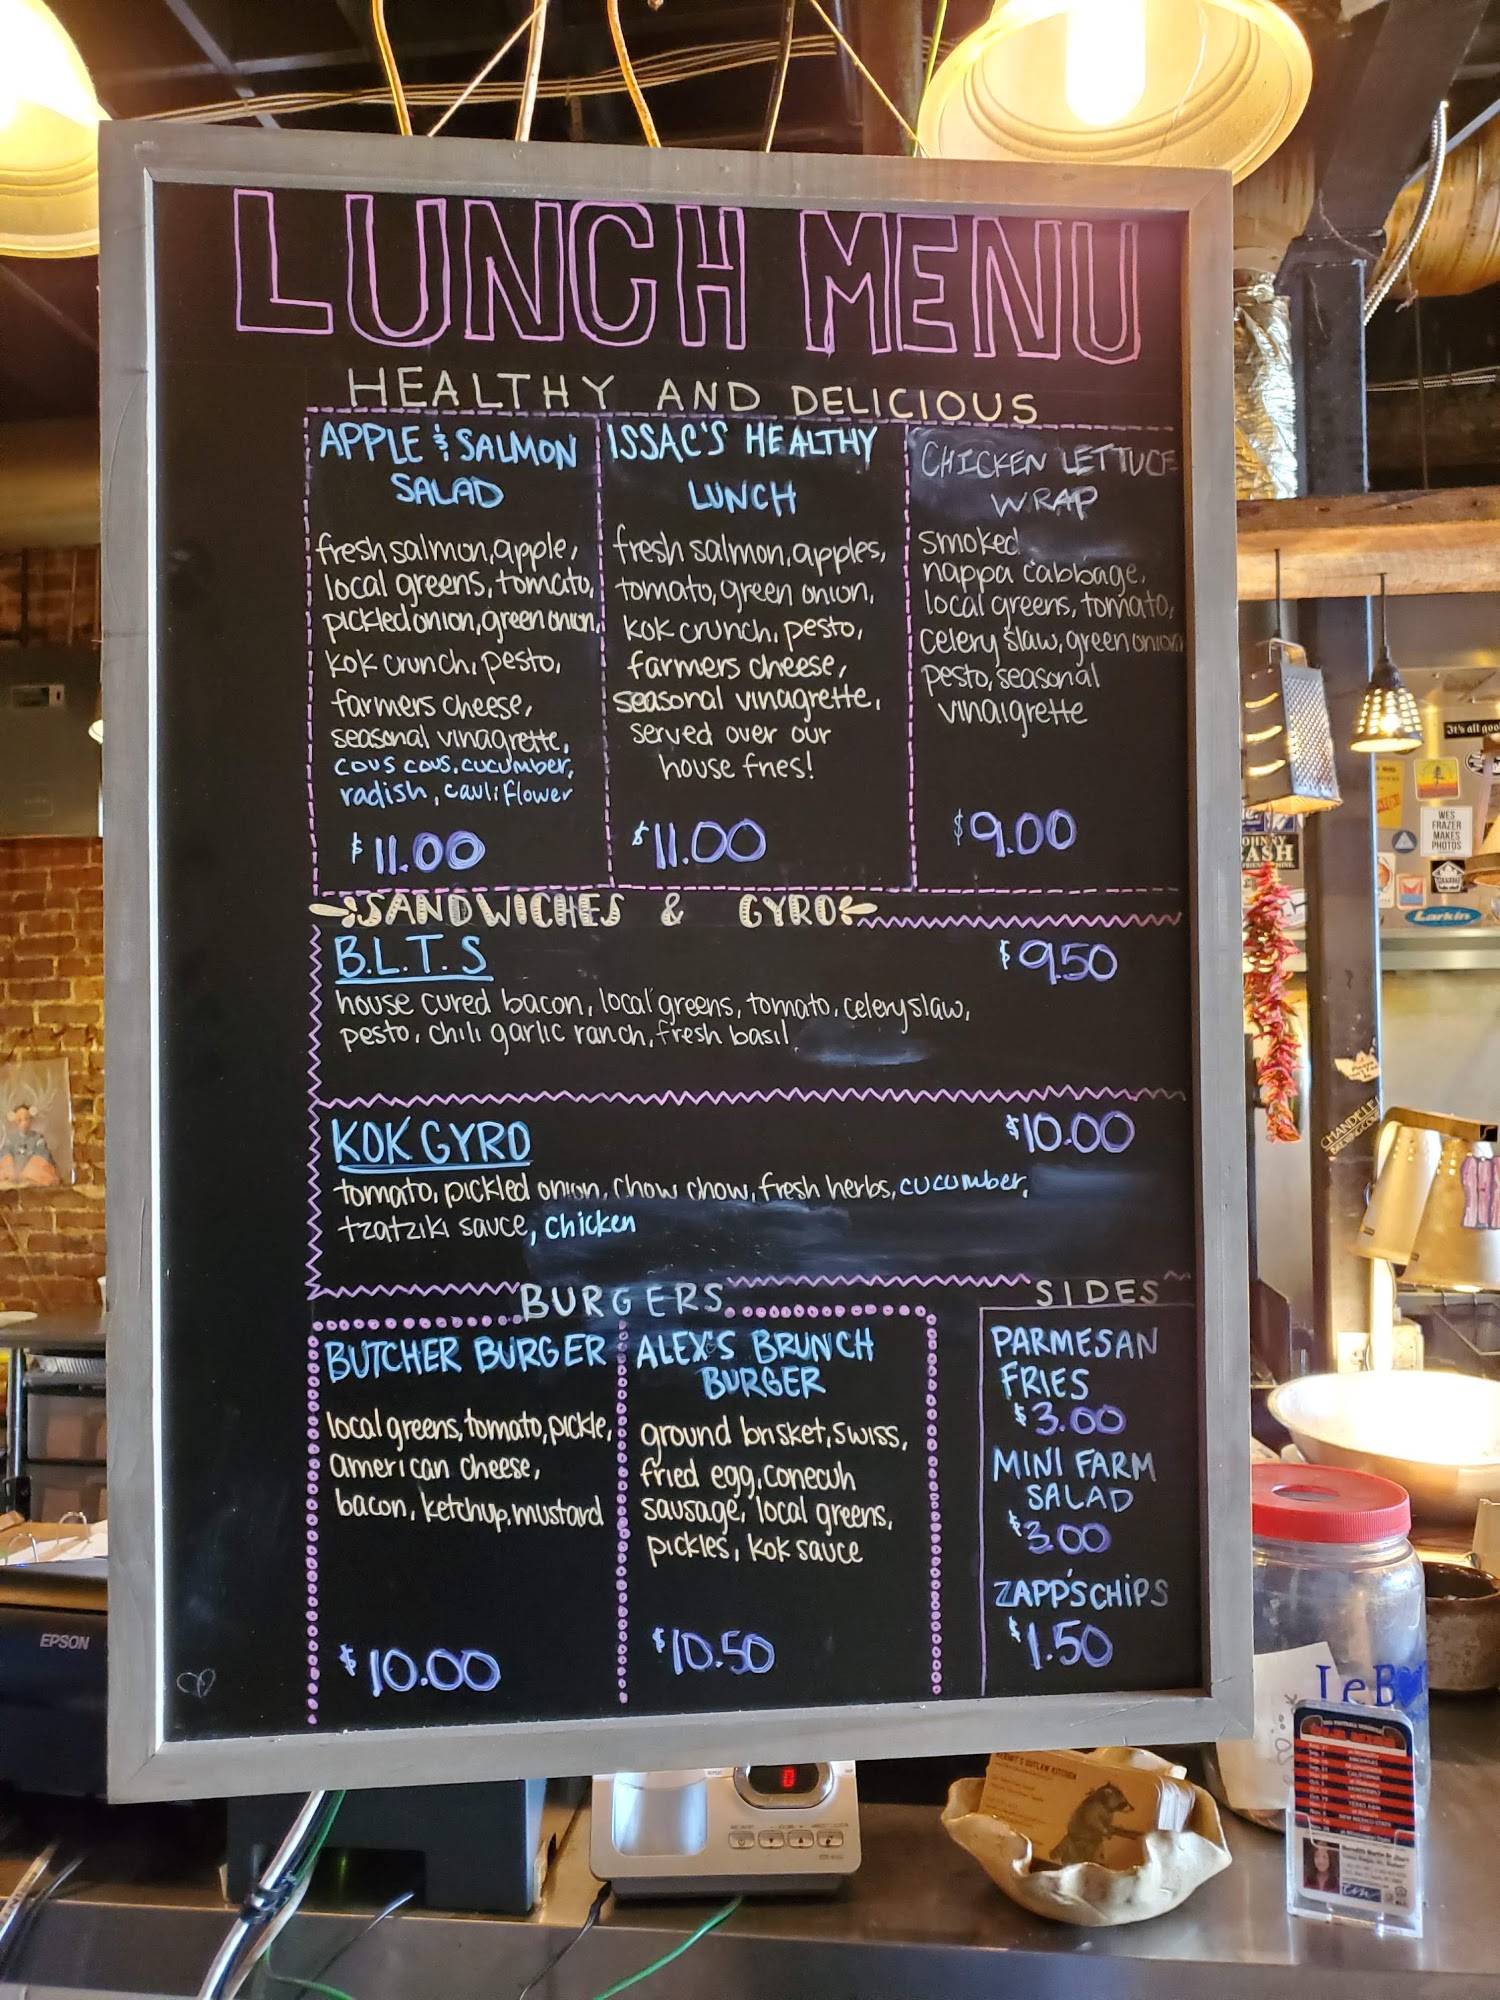 LUNCH MENU
HEALTHY AND DELICIOUS
APPLE & SALMON
SALAD
fresh salmon, apple,
local greens, tomato,
pickled onion, green onion,
kok crunch, pesto,
farmers cheese,
seasonal vinagrette,
cous cous, cucumber,
radish, cauliflower
$11.00
ISSAC'S HEALTHY
LUNCH
fresh salmon, apples,
tomato, green onion,
kok crunch, pesto,
farmers cheese,
seasonal vinagrette,
served over our
house fries!
$11.00
CHICKEN LETTUCE
WRAP
smoked
nappa cabbage,
local greens, tomato,
celery slaw, green onion
pesto, seasonal
vinaigrette
$9.00
SANDWICHES & GYRO
B.L.T.S
$9.50
house cured bacon, local greens, tomato, celery slaw,
pesto, chili garlic ranch, fresh basil
KOK GYRO
$10.00
tomato, pickled onion, chow chow, fresh herbs, cucumber,
tzatziki sauce, chicken
BURGERS
BUTCHER BURGER
local greens, tomato, pickle,
american cheese,
bacon, ketchup, mustard
$10.00
ALEX'S BRUNCH
BURGER
ground brisket, swiss,
fried egg, conecuh
sausage, local greens,
pickles, kok sauce
$10.50
SIDES
PARMESAN
FRIES
$3.00
MINI FARM
SALAD
$3.00
ZAPP'S CHIPS
$1.50
EPSON
It's all goo
WES
FRAZER
MAKES
PHOTOS
CASH
Larkin
OUTLAW KITCHEN